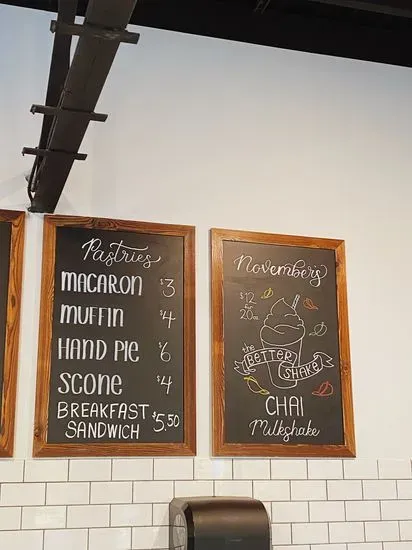 Pastries
MACARON $3
MUFFIN $4
HAND PIE $6
SCONE $4
BREAKFAST
SANDWICH $5.50
November's
$12
20oz
the
BETTER
SHAKE
CHAI
Milkshake